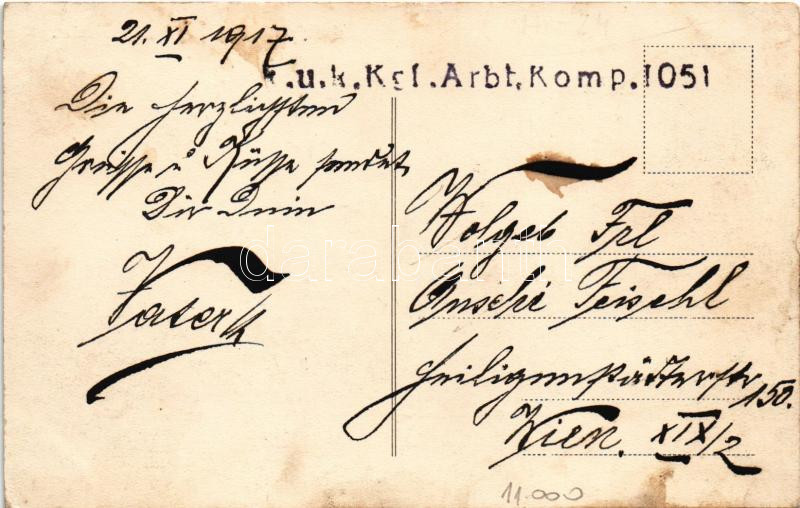 21. XI 1917
k.u.k.Kgf.Arbt.Komp.1051
Die herzlichsten
Grüsse u Küsse sendet
Dir Dein
Vater
Wolgeb Frl
Feischl
Heiligenstädterstr
150.
Wien. XIX/2
11.000
darabanth